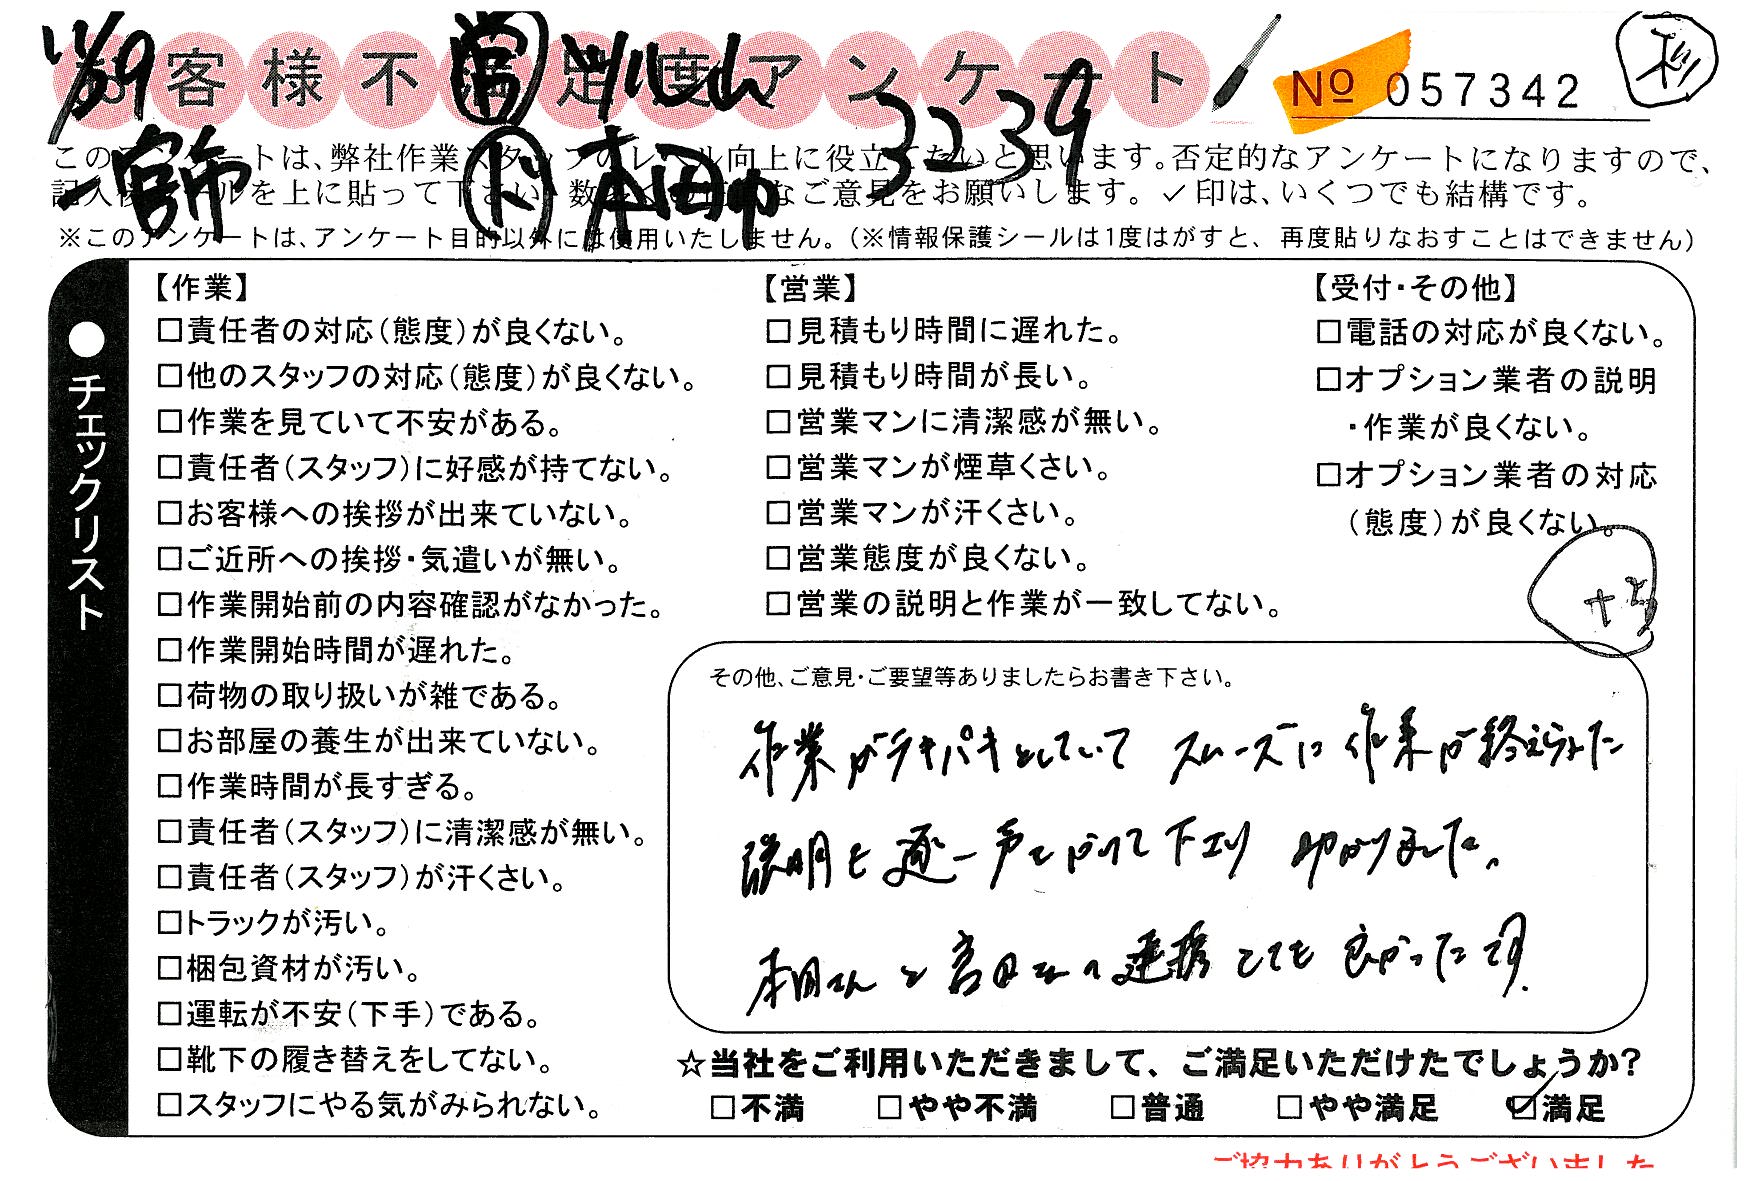 11/29 ㊡
お客様不満足度アンケート
No 057342
3239
本田
このアンケートは、弊社作業スタッフのレベル向上に役立てたいと思います。否定的なアンケートになりますので、
記入後シールを上に貼って下さい。数多くの正直なご意見をお願いします。✓印は、いくつでも結構です。
※このアンケートは、アンケート目的以外には使用いたしません。（※情報保護シールは1度はがすと、再度貼りなおすことはできません）
●チェックリスト
【作業】
□責任者の対応（態度）が良くない。
□他のスタッフの対応（態度）が良くない。
□作業を見ていて不安がある。
□責任者（スタッフ）に好感が持てない。
□お客様への挨拶が出来ていない。
□ご近所への挨拶・気遣いが無い。
□作業開始前の内容確認がなかった。
□作業開始時間が遅れた。
□荷物の取り扱いが雑である。
□お部屋の養生が出来ていない。
□作業時間が長すぎる。
□責任者（スタッフ）に清潔感が無い。
□責任者（スタッフ）が汗くさい。
□トラックが汚い。
□梱包資材が汚い。
□運転が不安（下手）である。
□靴下の履き替えをしてない。
□スタッフにやる気がみられない。
【営業】
□見積もり時間に遅れた。
□見積もり時間が長い。
□営業マンに清潔感が無い。
□営業マンが煙草くさい。
□営業マンが汗くさい。
□営業態度が良くない。
□営業の説明と作業が一致してない。
【受付・その他】
□電話の対応が良くない。
□オプション業者の説明
・作業が良くない。
□オプション業者の対応
（態度）が良くない。
その他、ご意見・ご要望等ありましたらお書き下さい。
作業がテキパキとしていて スムーズに作業が終えられた
説明も逐一声をかけて下さり 助かりました。
本田さんと宮田さんの連携とても良かったです.
☆当社をご利用いただきまして、ご満足いただけたでしょうか？
□不満 □やや不満 □普通 □やや満足 ☑満足
ご協力ありがとうございました